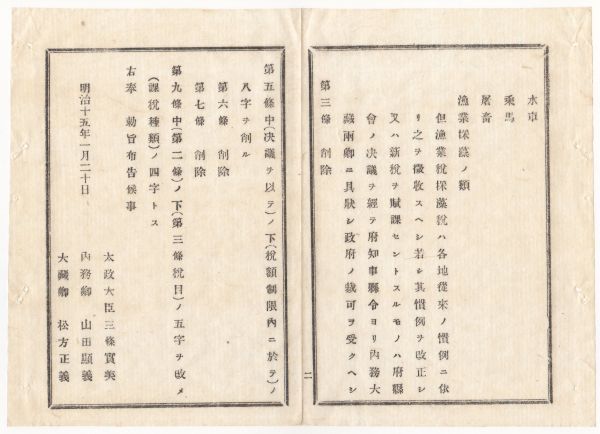 水車
乗馬
屠畜
漁業採藻ノ類
但漁業税採藻税ハ各地從來ノ慣例ニ依
リ之ヲ徴收スヘシ若シ其慣例ヲ改正シ
又ハ新税ヲ賦課セントスルモノハ府縣
會ノ决議ヲ經テ府知事縣令ヨリ內務大
藏兩卿ニ具狀シ政府ノ裁可ヲ受クヘシ
第三條 削除
二
第五條中(决議ヲ以テ)ノ下(税額制限內ニ於テ)ノ
八字ヲ削ル
第六條 削除
第七條 削除
第九條中(第二條)ノ下(第三條税目)ノ五字ヲ改メ
(課税種類)ノ四字トス
右奉 勅旨布告候事
明治十五年一月二十日
太政大臣三條實美
內務卿 山田顯義
大藏卿 松方正義